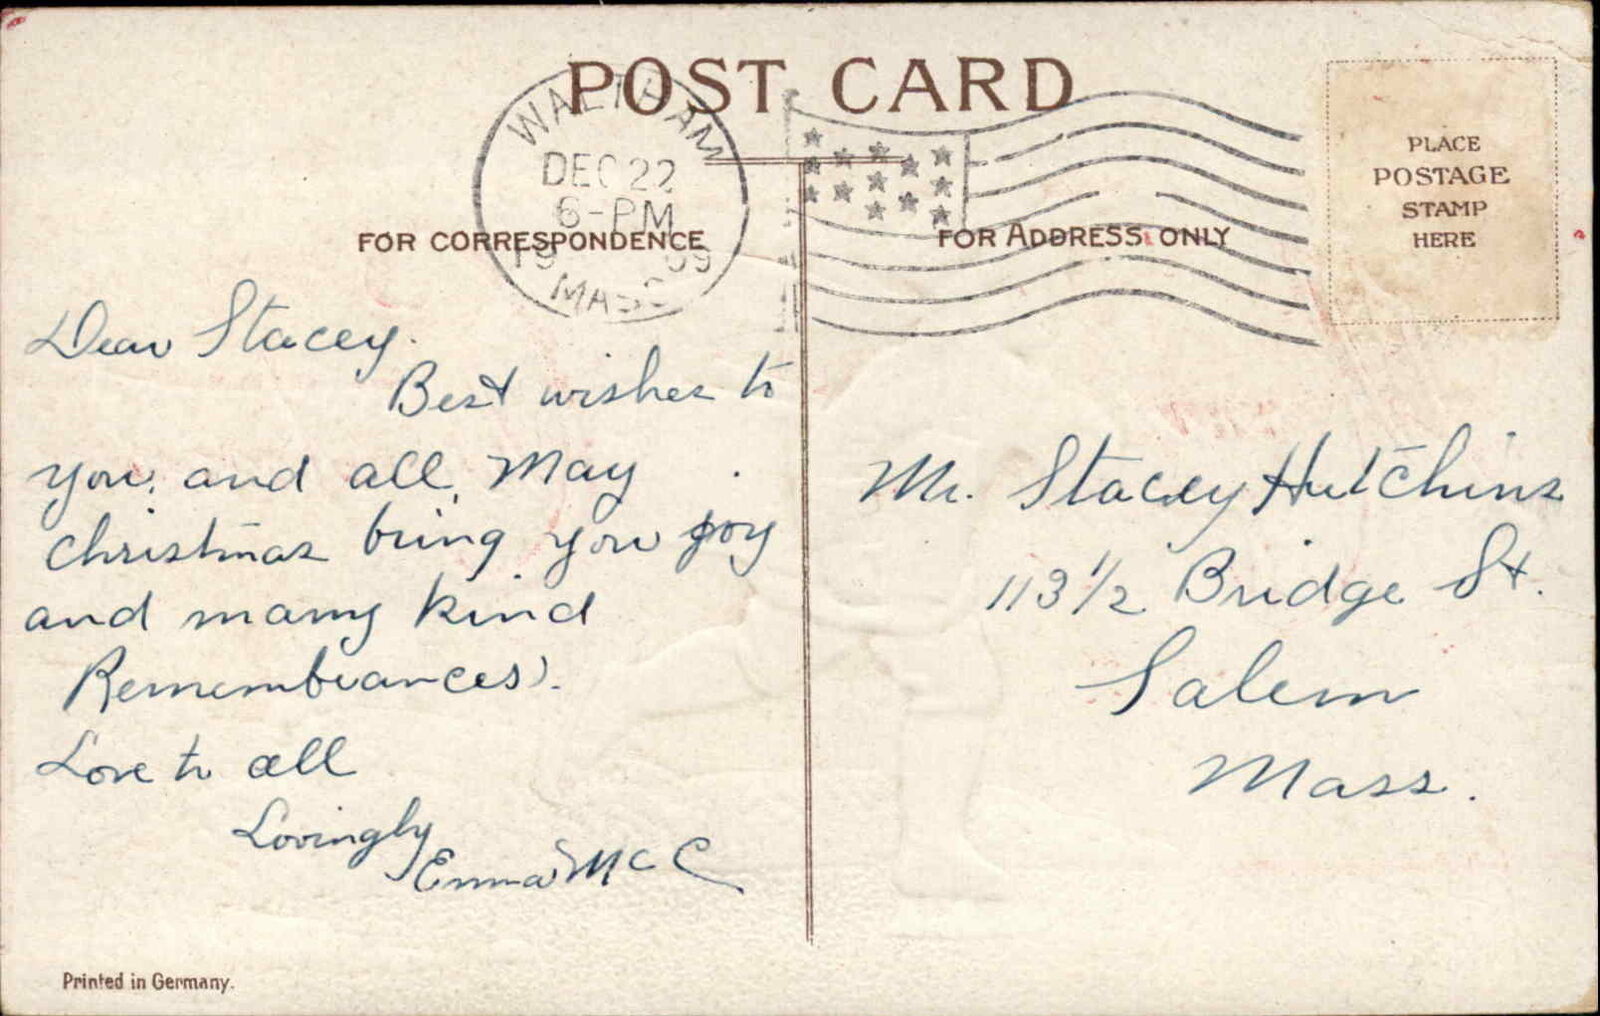 POST CARD
WALTHAM
DEC 22
6-PM
1909
MASS
FOR CORRESPONDENCE
FOR ADDRESS ONLY
PLACE
POSTAGE
STAMP
HERE
Dear Stacey.
Best wishes to
you, and all, May
Christmas bring you joy
and many kind
Remembrances.
Love to all
Lovingly
Emma McC
Mr. Stacey Hutchins
113 1/2 Bridge St.
Salem
Mass.
Printed in Germany.